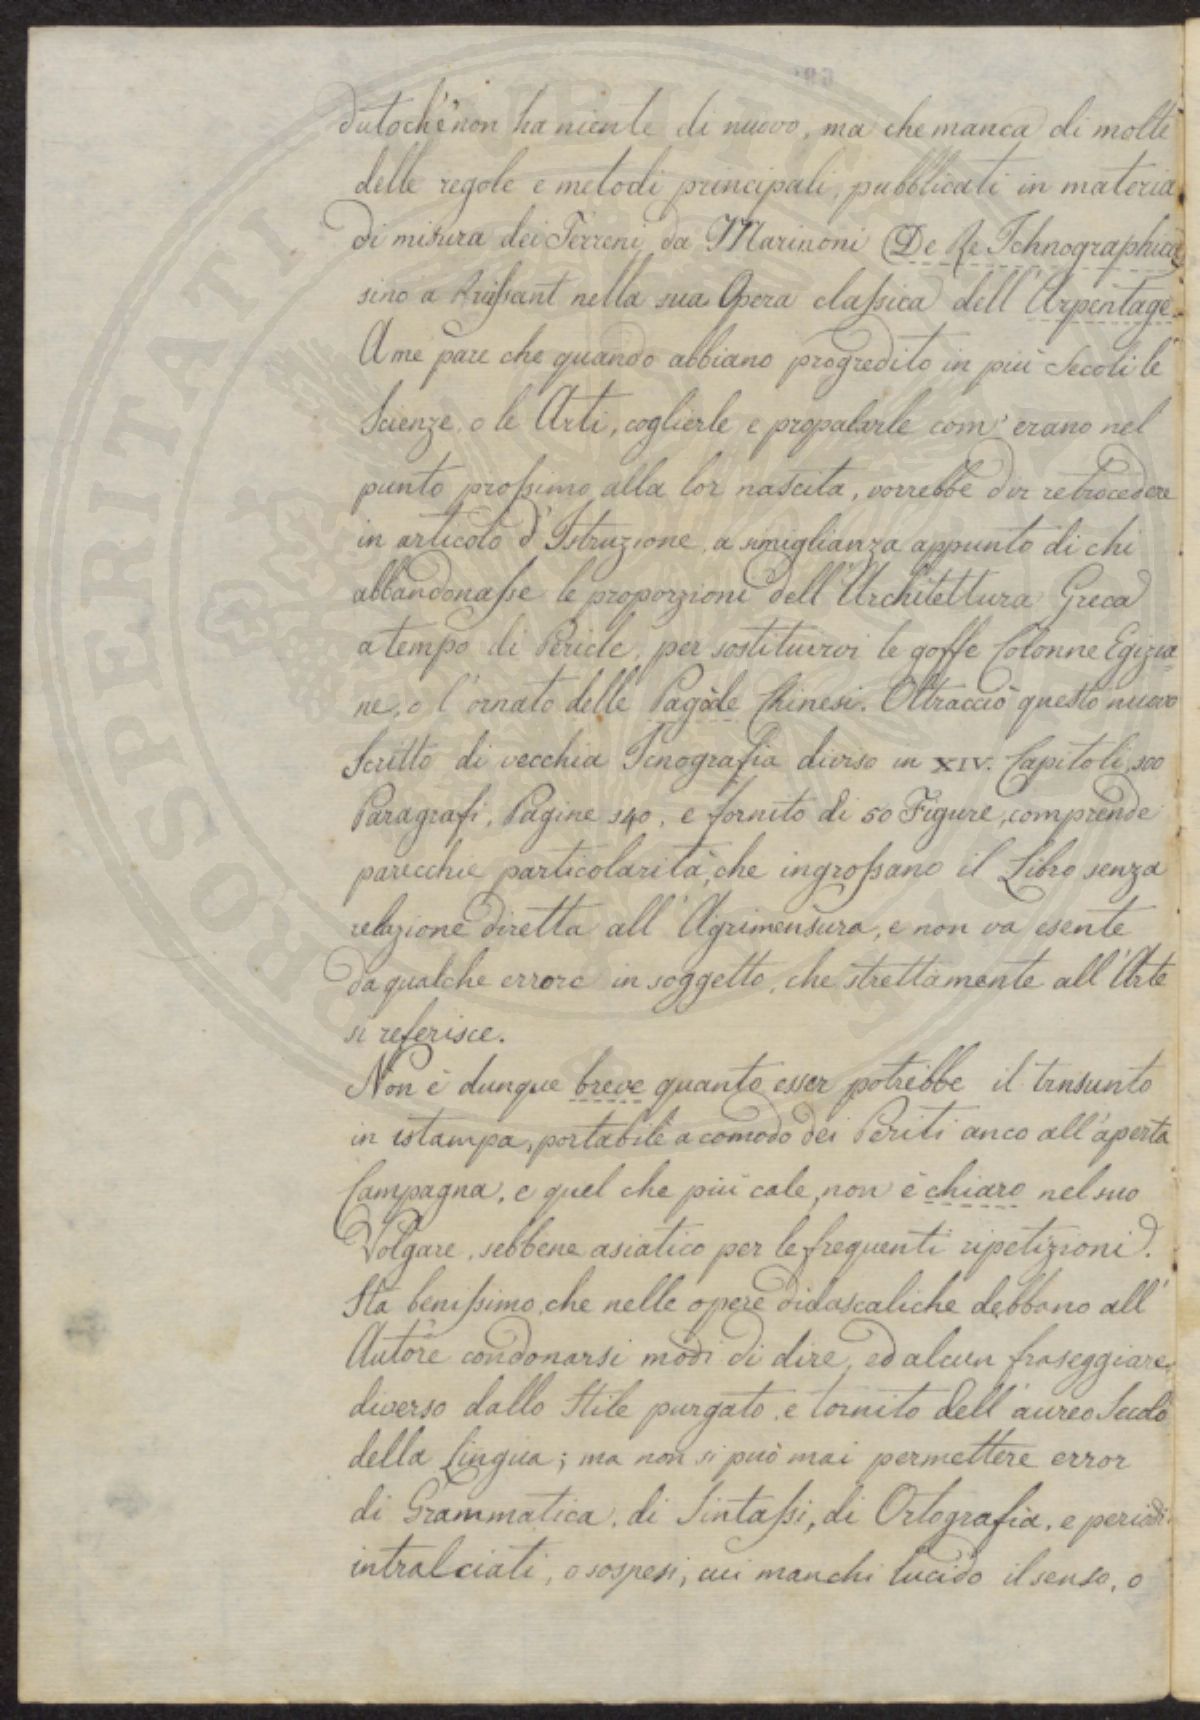 dutochè non ha niente di nuovo, ma che manca di molte
delle regole e metodi principali, pubblicati in materia
di misura dei Terreni da Marinoni (De Re Ichnographica)
sino a nella sua Opera classica dell'Arpentage.
A me pare che quando abbiano progredito in più Secoli le
Scienze, o le Arti, coglierle e propalarle com'erano nel
punto prossimo alla lor nascita, vorrebbe dir retrocedere
in articolo d'Istruzione, a simiglianza appunto di chi
abbandonasse le proporzioni dell'Architettura Greca
a tempo di Pericle, per sostituirvi le goffe Colonne Egizia=
ne, o l'ornato delle Pagòde Chinesi. Oltracciò questo nuovo
Scritto di vecchia Icnografia diviso in XIV. Capitoli, 300
Paragrafi, Pagine 340, e fornito di 50 Figure, comprende
parecchie particolarità, che ingrossano il Libro senza
relazione diretta all'Agrimensura, e non va esente
da qualche errore in soggetto, che strettamente all'Arte
si referisce.
Non è dunque breve quanto esser potrebbe il transunto
in istampa, portabile a comodo dei Periti anco all'aperta
Campagna, e quel che più cale, non è chiaro nel suo
Volgare, sebbene asiatico per le frequenti ripetizioni.
Sta benissimo, che nelle opere didascaliche debbano all'
Autore condonarsi modi di dire, ed alcun fraseggiare,
diverso dallo Stile purgato, e tornito dell'aureo Secolo
della Lingua; ma non si può mai permettere error
di Grammatica, di Sintassi, di Ortografia, e periodi
intralciati, o sospesi, cui manchi lucido il senso, o
PROSPERITATI PUBLICAE